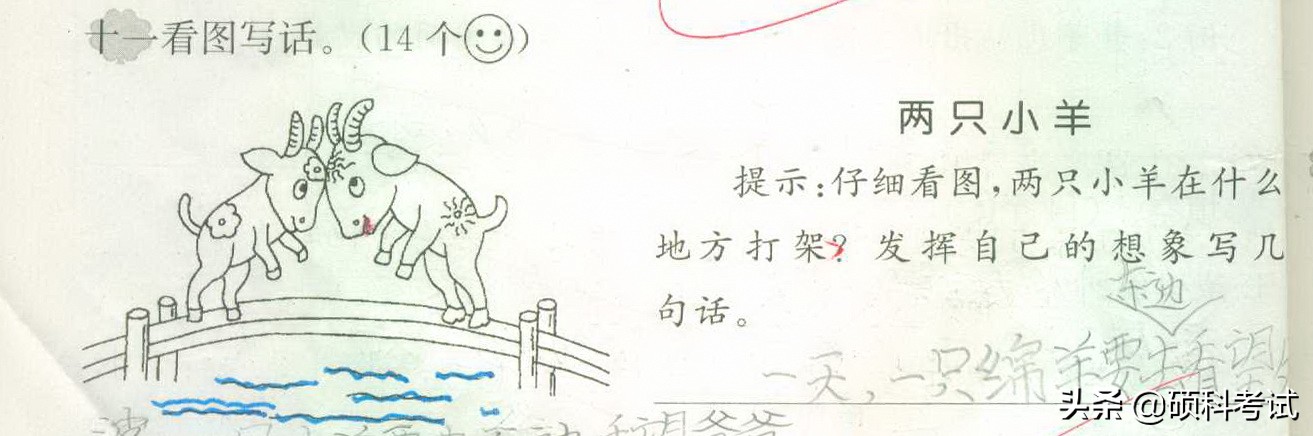 十一看图写话。(14个)
两只小羊
提示:仔细看图,两只小羊在什么
地方打架? 发挥自己的想象写几
句话。
东边
一天,一只绵羊要去看望
头条 @硕科考试